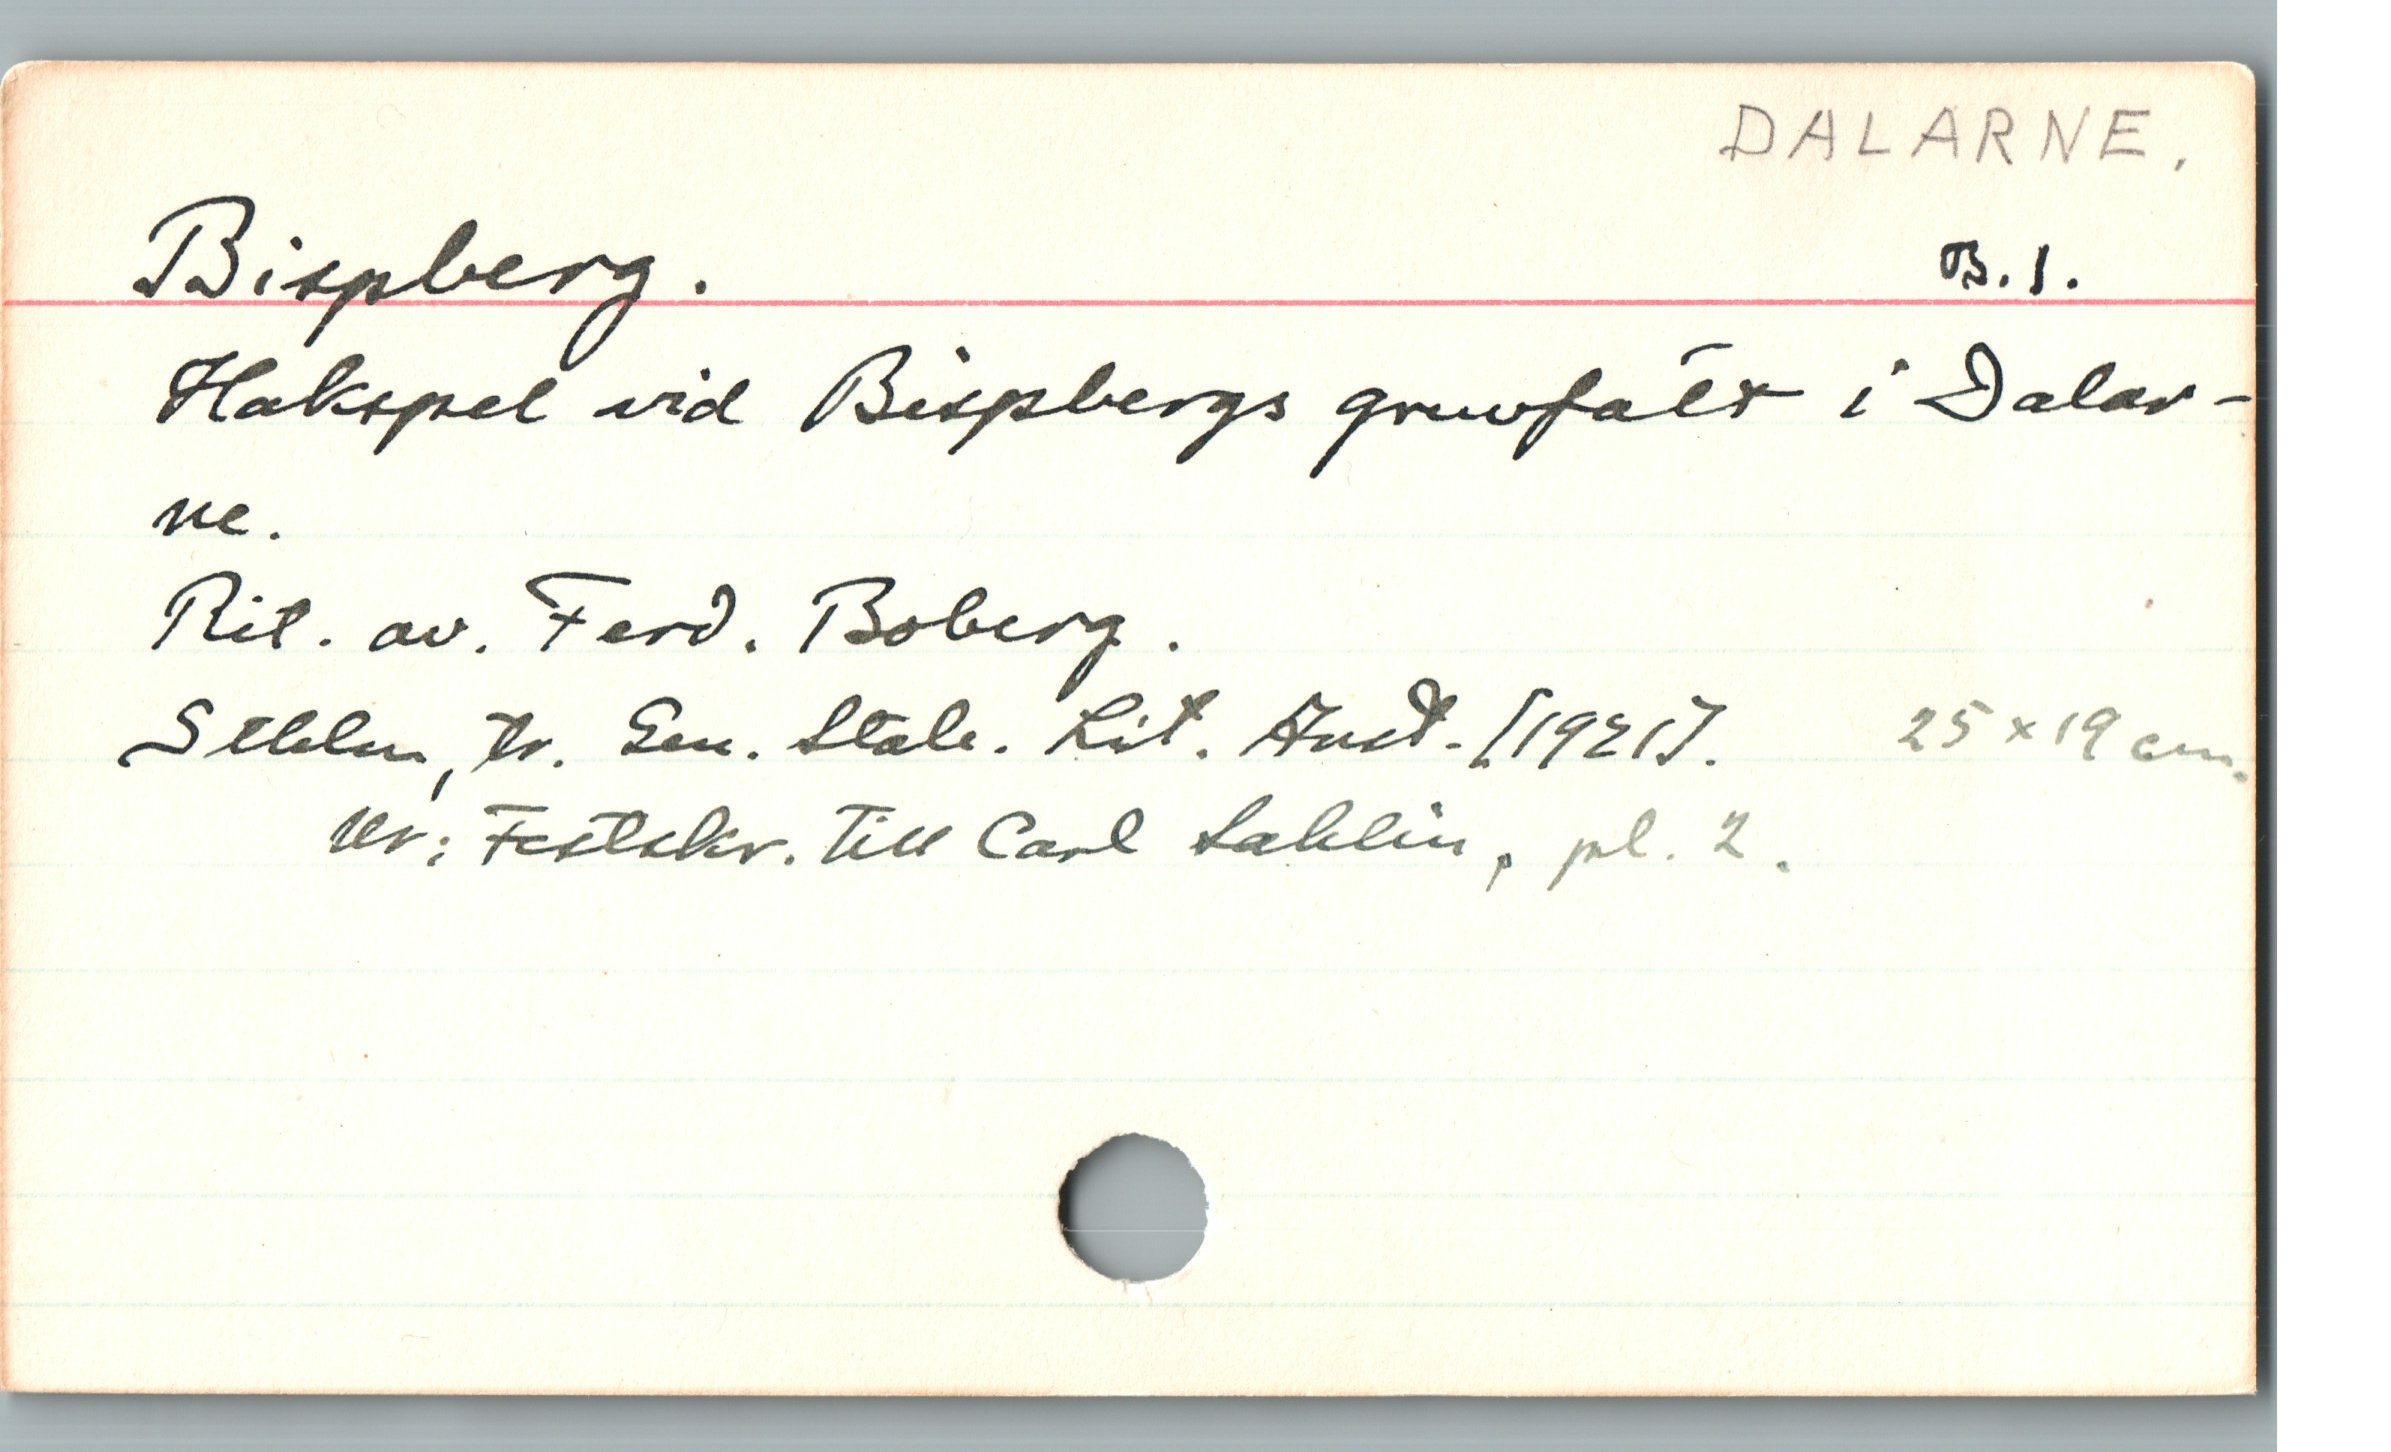 DALARNE.
Bispberg. B. 1.
Hakspel vid Bispbergs gruvfält i Dalar-
ne.
Rit. av. Ferd. Boberg.
Sthlm, tr. Gen. Stab. Lit. Anst. [1921]. 25 x 19 cm.
Ur: Festskr. till Carl Sahlin, pl. 2.